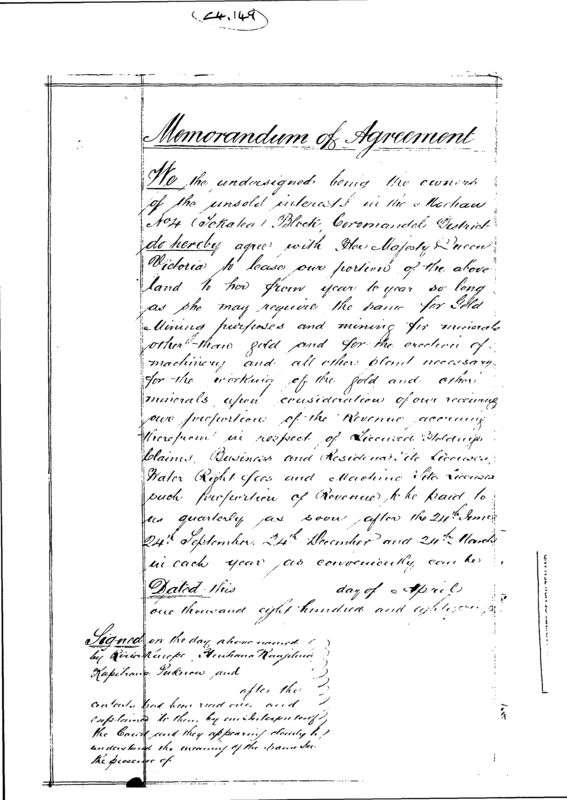 C4.149
Memorandum of Agreement
We the undersigned being the owners
of the unsold interests in the
No 4 (Tokatea) Block, Coromandel District
do hereby agree with Her Majesty Queen
Victoria to lease our portion of the above
land to her from year to year so long
as she may require the same for Gold
Mining purposes and mining for minerals
other than gold and for the erection of
machinery and all other plant necessary
for the working of the gold and other
minerals upon consideration of our receiving
our proportion of the Revenue accruing
therefrom in respect of Licensed Holdings
Claims, Business and Residence Site Licenses,
Water Right fees and Machine Site Licenses
such proportion of Revenue to be paid to
us quarterly as soon after the 24th June
24th September 24th December and 24th March
in each year as conveniently can be
Dated this day of April
one thousand eight hundred and
Signed on the day above named
by
and
after the
contents had been read over and
explained to them by an Interpreter of
the Court and they appearing clearly to
understand the meaning of the same in
the presence of